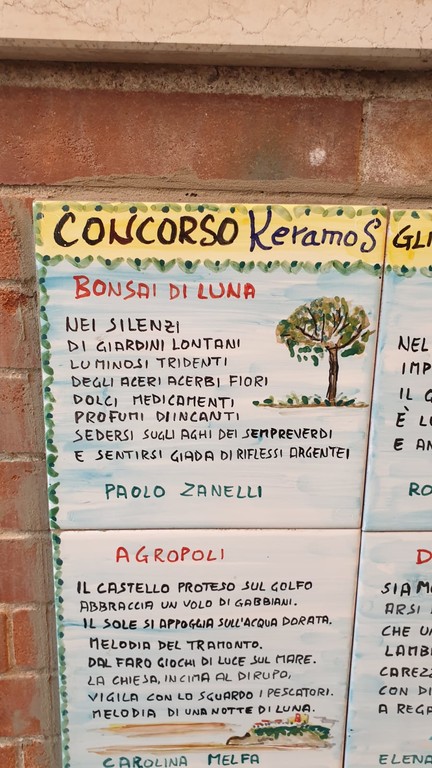 CONCORSO KeramoS
BONSAI DI LUNA
NEI SILENZI
DI GIARDINI LONTANI
LUMINOSI TRIDENTI
DEGLI ACERI ACERBI FIORI
DOLCI MEDICAMENTI
PROFUMI DI INCANTI
SEDERSI SUGLI AGHI DEI SEMPREVERDI
E SENTIRSI GIADA DI RIFLESSI ARGENTEI
PAOLO ZANELLI
AGROPOLI
IL CASTELLO PROTESO SUL GOLFO
ABBRACCIA UN VOLO DI GABBIANI.
IL SOLE SI APPOGGIA SULL'ACQUA DORATA.
MELODIA DEL TRAMONTO.
DAL FARO GIOCHI DI LUCE SUL MARE.
LA CHIESA, IN CIMA AL DIRUPO,
VIGILA CON LO SGUARDO I PESCATORI.
MELODIA DI UNA NOTTE DI LUNA.
CAROLINA MELFA
GLI
NEL
IMP
IL
È
E
RO
D
SIA
ARSI
CHE
LAMB
CAREZZ
CON DI
A REGA
ELENA